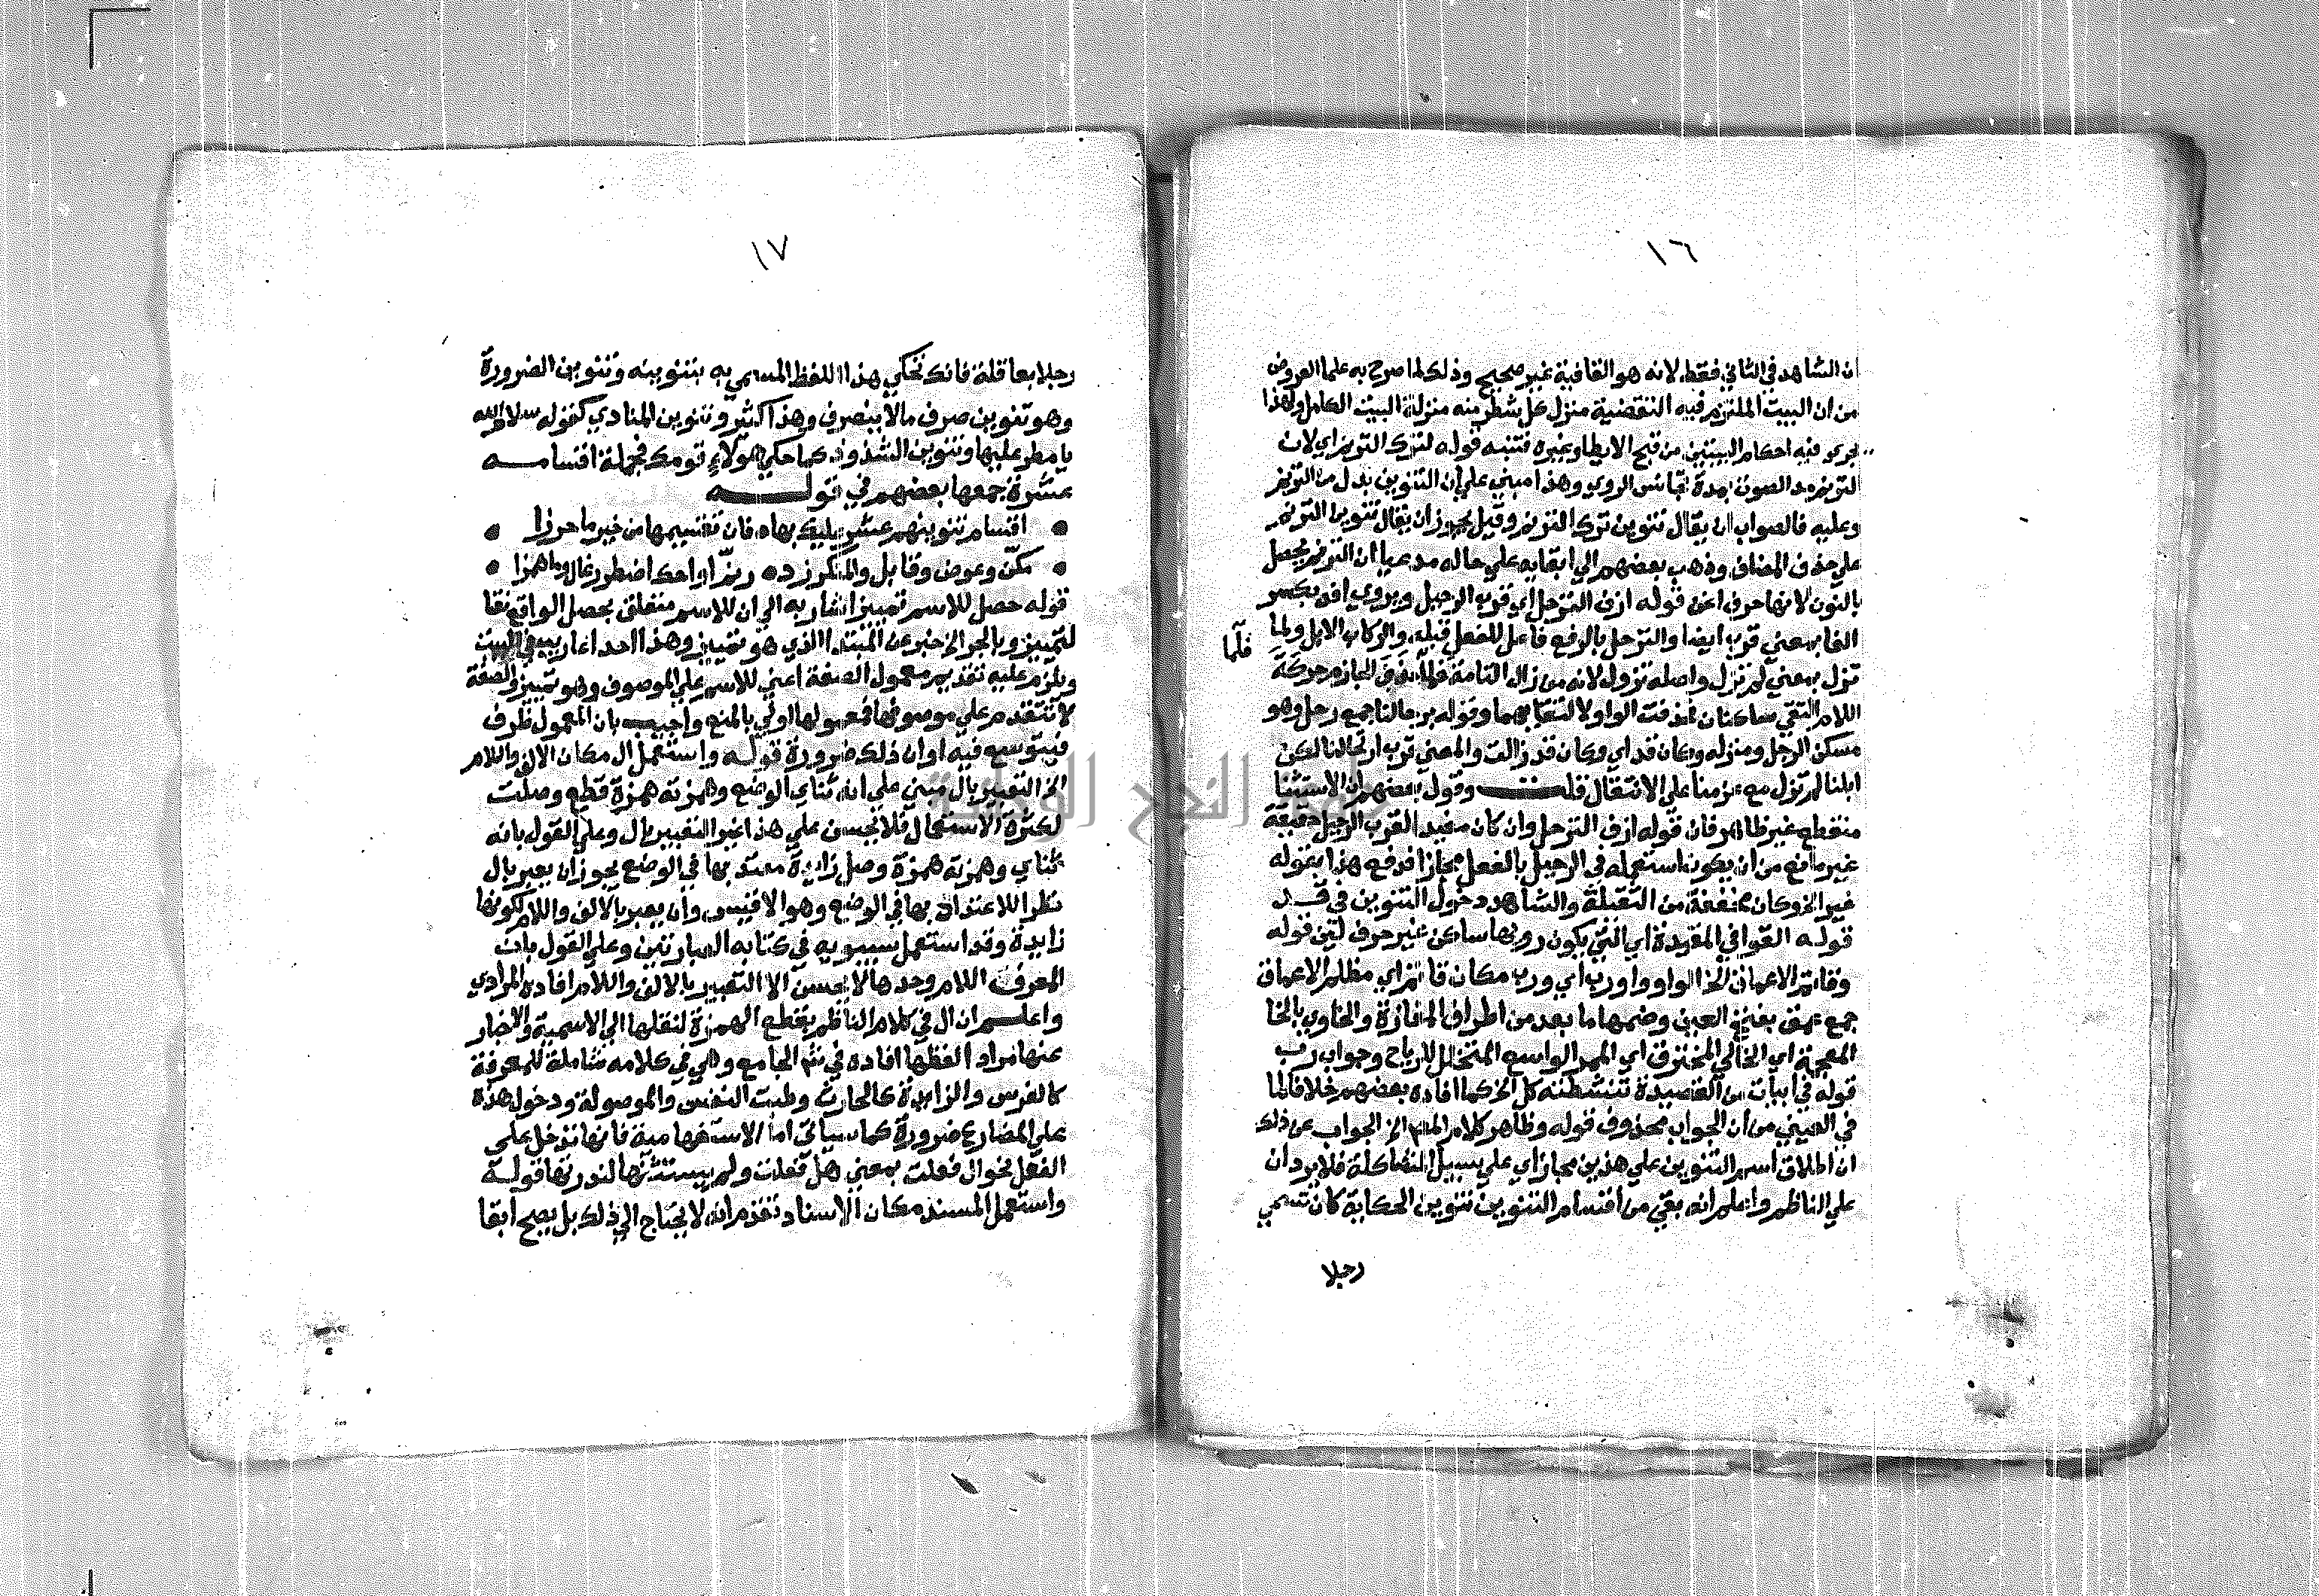 ١٦
ان الشاهد في الثاني فقط لانه هو القافية غير صحيح وذلك لما صرح به علما العروض
من ان البيت الملتزم فيه التقفية منزل كل شطر منه منزلة البيت الكامل ولهذا
يجري فيه احكام البيتين من قبح الايطا وغيره فتنبه قوله لترك الترنم اي لان
الترنم مد الصوت بمدة تجانس الروي وهذا مبني علي ان التنوين بدل من الترنم
وعليه فالصواب ان يقال تنوين ترك الترنم وقيل يجوز ان يقال تنوين الترنم
علي حذف المضاف وذهب بعضهم الي ابقايه علي حاله مدعيا ان الترنم يحصل
بالنون لانها حرف اغن قوله ازف الترحل اي قرب الرحيل ويروي افد بكسر
الفا بمعني قرب ايضا والترحل بالرفع فاعل للفعل قبله والركاب الابل ولما
فلما
تزل بمعني لم تزل واصله تزول لانه من زال التامة حركة
اللام التقي ساكنان فحذفت الواو لالتقايهما وقوله برحالنا جمع رحل وهو
مسكن الرجل ومنزله وكان قد اي وكان قد زالت والمعني قرب ارتحالنا لكن
ابلنا لم تزل مع عزمنا علي الانتقال قلت وقول بعضهم ان الاستثنا
منقطع غير ظاهر فان قوله ازف الترحل وان كان مفيد القرب الرحيل حقيقة
غير مانع من ان يكون استعمله في الرحيل بالفعل مجازا فرفع هذا بقوله
غير الخ وكان مخففة من الثقيلة والشاهد دخول التنوين في قد
قوله القوافي المقيدة اي التي يكون رويها ساكن غير حرف لين قوله
وقاتم الاعماق الخ الواو واو رب اي ورب مكان قاتم اي مظلم الاعماق
جمع عمق بفتح العين وضمها ما بعد من اطراف المفازة والخاوي بالخا
المعجمة اي الخالي المخترق اي الممر الواسع المتخلل للرياح وجواب رب
قوله في ابيات من القصيدة تنشطته كل الخ كما افاده بعضهم خلافا لما
في العيني من ان الجواب محذوف قوله وظاهر كلام المص الخ الجواب عن ذلك
ان اطلاق اسم التنوين علي هذين مجاز اي علي سبيل المشاكلة فلا يرد ان
علي الناظم واعلم انه بقي من اقسام التنوين تنوين الحكاية كان تسمي
رجلا
١٧
رجلا بعاقلة فانك تحكي هذا اللفظ المسمي به بتنوينه وتنوين الضرورة
وهو تنوين صرف مالا ينصرف وهذا اكثر وتنوين المنادي كقوله سلام الله
يا مطر عليها وتنوين الشذوذ كما حكي هولاء قومك فجملة اقسامه
عشرة جمعها بعضهم في قوله
اقسام تنوينهم عشر عليك بها فان تقسيمها من خير ما حرزا
مكن وعوض وقابل والمنكر زد رنم او احك اضطرر غال وما همزا
قوله حصل للاسم تمييز اشار به الي ان للاسم متعلق بحصل الواقع نعتا
لتمييز وبالجر الخ خبر عن المبتدا الذي هو تمييز وهذا احد اعاريبه في البيت
ويلزم عليه تقديم معمول الصفة اعني للاسم علي الموصوف وهو تمييز والصفة
لا تتقدم علي موصوفها فمعمولها اولي بالمنع واجيب بان المعمول ظرف
فيتوسع فيه او ان ذلك ضرورة قوله واستعمل ال مكان الالف واللام
الخ التعبير بال مبني علي انه ثناي الوضع وهمزته همزة قطع وصلت
لكثرة الاستعمال فلا يحسن علي هذا غير التعبير بال وعلي القول بانه
ثناي وهمزته همزة وصل زايدة معتد بها في الوضع يجوز ان يعبر بال
نظرا للاعتداد بها في الوضع وهو الاقيس وان يعبر بالالف واللام لكونها
زايدة وقد استعمل سيبويه في كتابه العبارتين وعلي القول بان
المعرف اللام وحدها لا يحسن الا التعبير بالالف واللام افاده المرادي
واعلم ان ال في كلام الناظم بقطع الهمزة لنقلها الي الاسمية والاخبار
عنها مرادا لفظها افاده في نتم الجامع وهي في كلامه شاملة للمعرفة
كالفرس والزايدة كالحارث وطبت النفس والموصولة ودخول هذه
علي المضارع ضرورة كما سياتي اما الاستفهامية فانها تدخل علي
الفعل نحو ال فعلت بمعني هل فعلت ولم يستثنها لندرتها قوله
واستعمل المسند مكان الاسناد تقدم انه لا يحتاج الي ذلك بل يصح ابقا